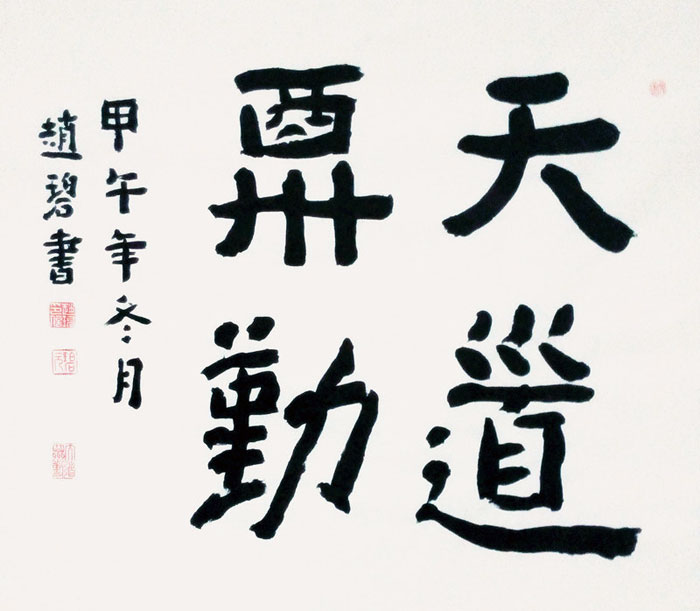 天道
酬勤
甲午年冬月
趙碧書